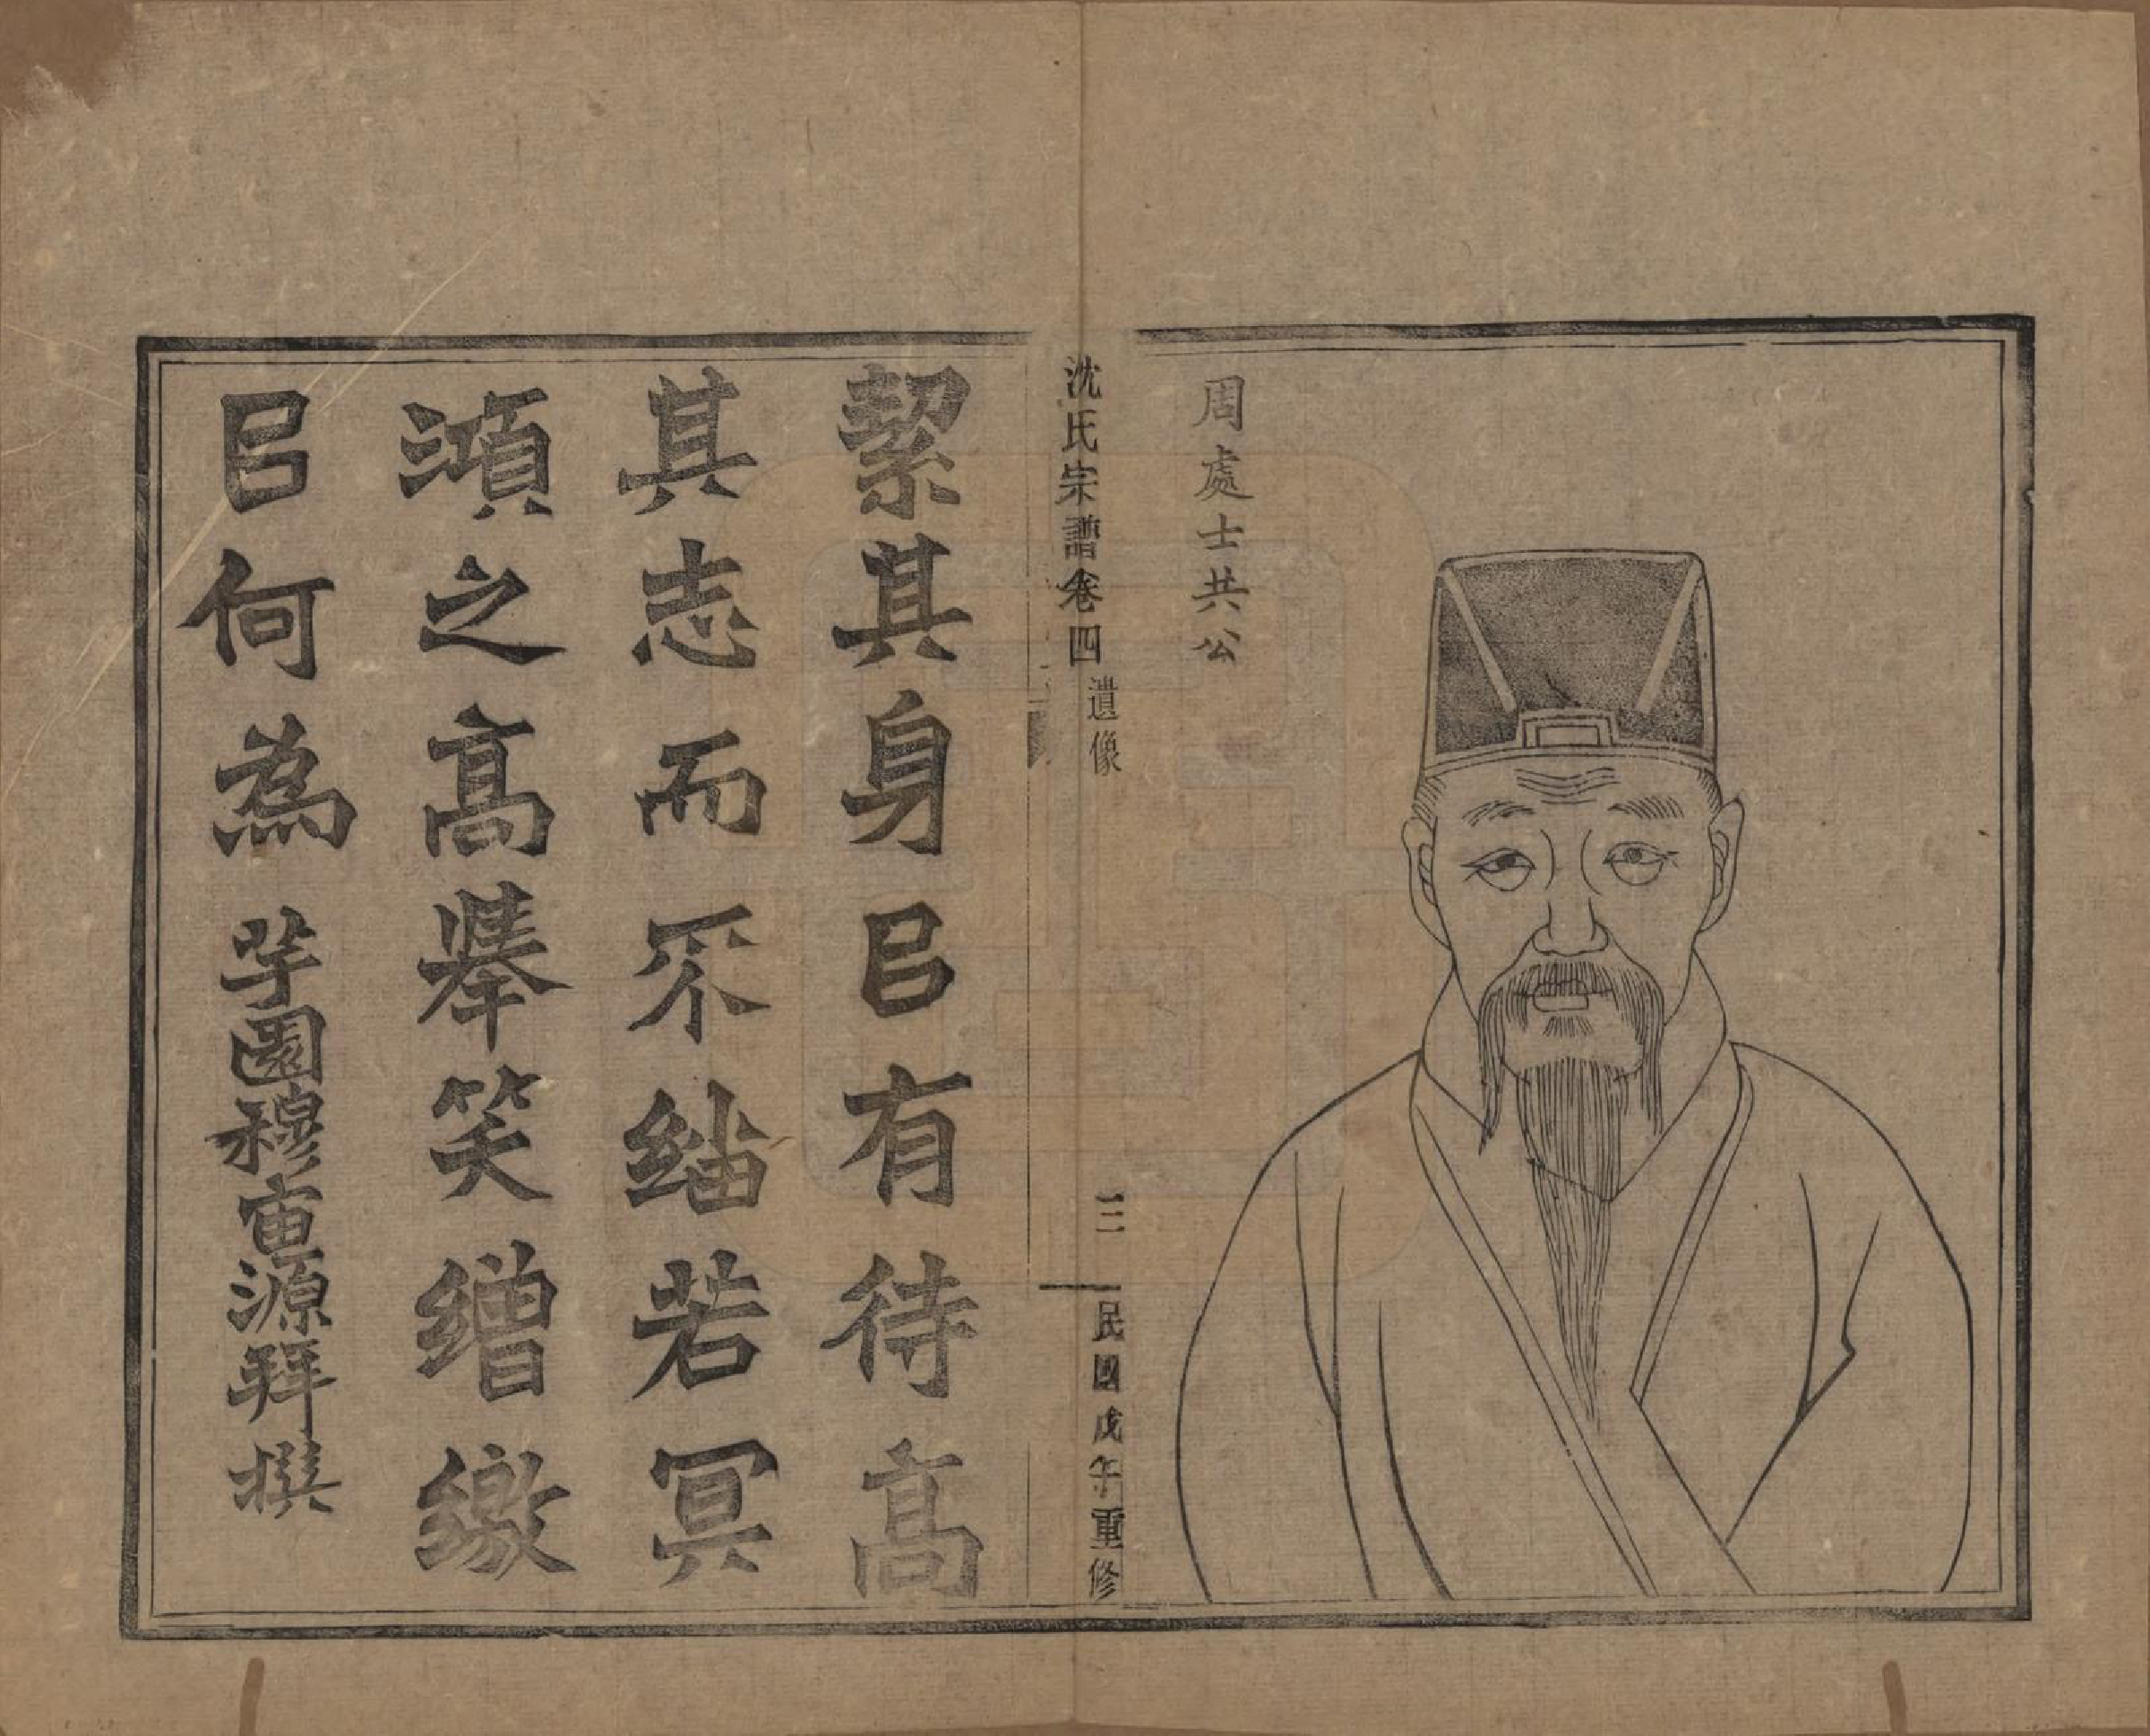 周處士共公
沈氏宗譜卷四 遺像 三 民國戊午重修
絜其身㠯有待高
其志而不緇若冥
鴻之高舉笑繒繳
㠯何為 芋園穆寅源拜撰